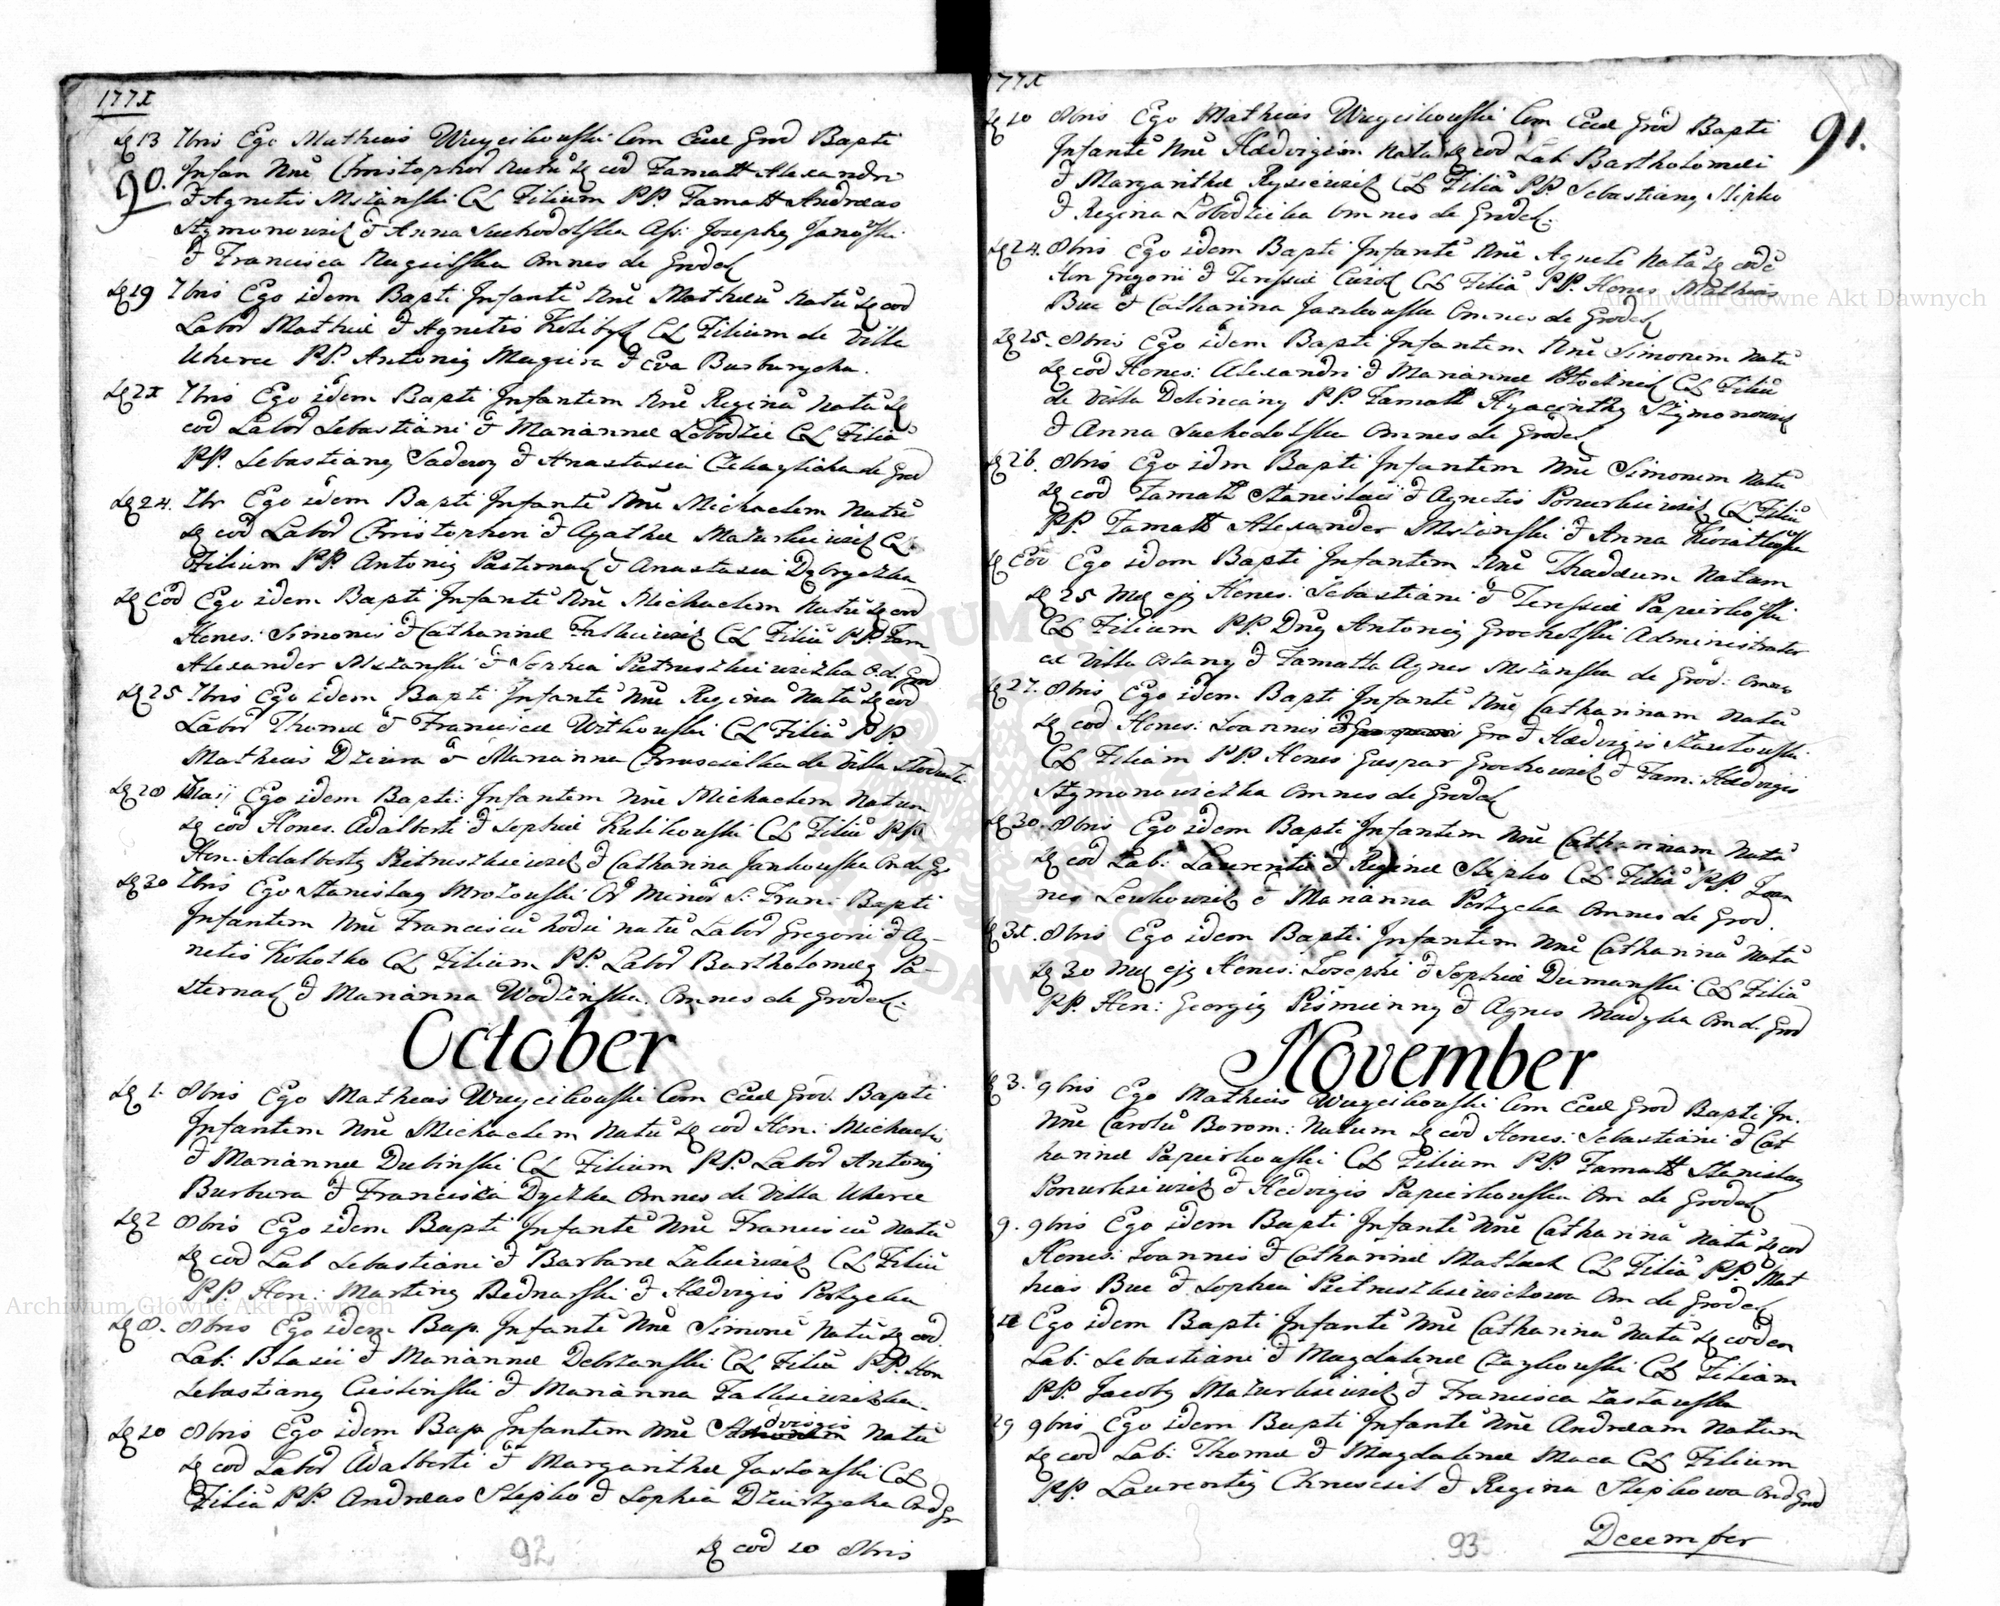 1771
90.
d. 13 7bris Ego Mathias Wuycikowski Com Eccl Grod Bapti
Infan Nne Christophor Natu d. eod Famatt Alexandri
& Agnetis Mszanski CL Filium PP. Famatt Andreas
Szymonowicz & Anna Suchodolska Ass: Josephg Janoski
& Francisca Omnes de Grodek
d. 19 7bris Ego idem Bapti Infante Nne Matheu Natu d. eod
Labor Mathiæ & Agnetis CL Filium de Villa
Uherce PP. Antonig Magiera & Eva Burburycha.
d. 21 7bris Ego idem Bapti Infantem Nne Regina Nata d.
eod Labor Sebastiani & Mariannæ Lobodzic CL Filia
PP. Sebastiang Sadowy & Anastasia de Grod
d. 24. 7br Ego idem Bapti Infante Nne Michaelem Natu
d. eod Labor Christopheri & Agathæ Mazurkiewicz CL
Filium PP. Antonig Pasternak & Anastasia
d. Eod Ego idem Bapti Infante Nne Michaelem Natu d. eod
Hones: Simonis & Catharinæ Falkiewicz CL Filiu PP. Fam
Alexander Mszanski & Sophia Pietruszkiewiczka O. d. Grod
d. 25 7bris Ego idem Bapti Infante Nne Regina Nata d. eod
Labor Thomæ & Franciscæ Witkowski CL Filia PP
Mathias Dziura & Marianna Chruscielka de Villa
d. 28 Maij Ego idem Bapti: Infantem Nne Michaelem Natum
d. eod Hones. Adalberti & Sophiæ Kulikowski CL Filiu PP.
Hon: Adalbertg Pietruszkiewicz & Catharina Jankowska Om de Gr
d. 30 7bris Ego Stanislag Mrozowski Or Minor S: Fran: Bapti
Infantem Nne Franciscu hodie natu Labor Gregorii & Ag-
netis Kokotko CL Filium PP. Labor Bartholomæg Pa-
sternak & Marianna Wodzinska. Omnes de Grodek:
October
d. 1. 8bris Ego Mathias Wuycikowski Com Eccl Grod. Bapti
Infantem Nne Michaelem Natu d. eod Hon: Michaelis
& Mariannæ Dubinski CL Filium PP. Labor Antonig
Burbura & Franciszka Dyczka Omnes de Villa Uherce
d. 2 8bris Ego idem Bapti Infante Nne Franciscu Natu
d. eod Lab Sebastiani & Barbaræ CL Filiu
PP. Hon: Marting Bednarski & Hædvigis Portycka
d. 8. 8bris Ego idem Bap. Infante Nne Simone Natu d. eod
Lab: Blasii & Mariannæ Debrzanski CL Filiu PP. Hon
Sebastiang Ciesinski & Marianna Falkiewiczka.
d. 10 8bris Ego idem Bap. Infantem Nne dvigis Nata
d. eod Labor Adalberti & Margarithæ Jastonski CL
Filia PP. Andreas Slepko & Sophia Om d Gr
d. eod 10 8bris
92
1771
91.
d. 10 8bris Ego Mathias Wuycikowski Com Eccl Grod Bapti
Infante Nne Hædvigim Nata d. eod Lab: Bartholomæi
& Margarithæ CL Filia PP. Sebastiang Slepko
& Regina Lobodzicka Omnes de Grodek:
d. 24. 8bris Ego idem Bapti Infante Nne Agnete Nata d. eode
Hon Gregorii & Teressiæ CL Filia PP. Hones Mathias
Buc & Catharina Jankowska Omnes de Grodek
d. 25. 8bris Ego idem Bapti Infantem Nne Simonem Natu
d. eod Hones: Alexandri & Mariannæ CL Filiu
de Villa Dolincany PP. Famatt Hyacinthg Szymonowicz
& Anna Suchodolska Omnes de Grodek
d. 26. 8bris Ego idm Bapti Infantem Nne Simonem Natu
d. eod Famatt Stanislaii & Agnetis Ponurkiewicz CL Filiu
PP. Famatt Alexander Mszanski & Anna
d. Eod Ego idem Bapti Infantem Nne Thaddæum Natam
d. 25 M ejg Hones: Sebastiani & Teressiæ Papierkoski
CL Filium PP. Dng Antonig Grocholski Administrator
de Villa Ostany & Famatta Agnes Mszanska de Grod: Omnes
d. 27. 8bris Ego idem Bapti Infante Nne Catharinam Nata
d. eod Hones: Ioannis & Grod Hædvigis
CL Filiam PP. Hones Gaspar Grochowicz & Fam: Hædvigis
Szymonowiczka Omnes de Grodek
d. 30. 8bris Ego idem Bapti Infantem Nne Catharinam Nata
d. eod Lab: Laurentii & Reginæ Slepko CL Filia PP. Ioan
nes Lewkowicz & Marianna Portycka Omnes de Grod.
d. 31. 8bris Ego idem Bapti: Infantem Nne Catharina Nata
d. 30 M ejg Hones: Josephi & Sophiæ Dumanski CL Filia
PP. Hon: Georgig Pismienny & Agnes Madycka Om d. Grod
November
d. 3. 9bris Ego Mathias Wuycikowski Com Eccl Grod Bapti In.
Nne Carolu Borom: Natum d. eod Hones: Sebastiani & Cat
harinæ Papierkowski CL Filium PP. Famatt Stanislag
Ponurkiewicz & Hedvigis Papierkowska Om de Grodek
9. 9bris Ego idem Bapti Infante Nne Catharina Nata d. eod
Hones: Ioannis & Catharinæ CL Filia PP. Mat
hias Buc & Sophia Pietruszkiewiczowa Om de Grodek
Ego idem Bapti Infante Nne Catharina Nata d. eodem
Lab: Sebastiani & Magdalenæ Czaykowski CL Filiam
PP. Jacobg Mazurkiewicz & Francisca Zastawska
29 9bris Ego idem Bapti Infante Nne Andræam Natum
d. eod Lab: Thomæ & Magdalenæ Maca CL Filium
PP. Laurentig Chrusciel & Regina Slepkowa Om d Grod
December
93
Archiwum Główne Akt Dawnych
Archiwum Główne Akt Dawnych